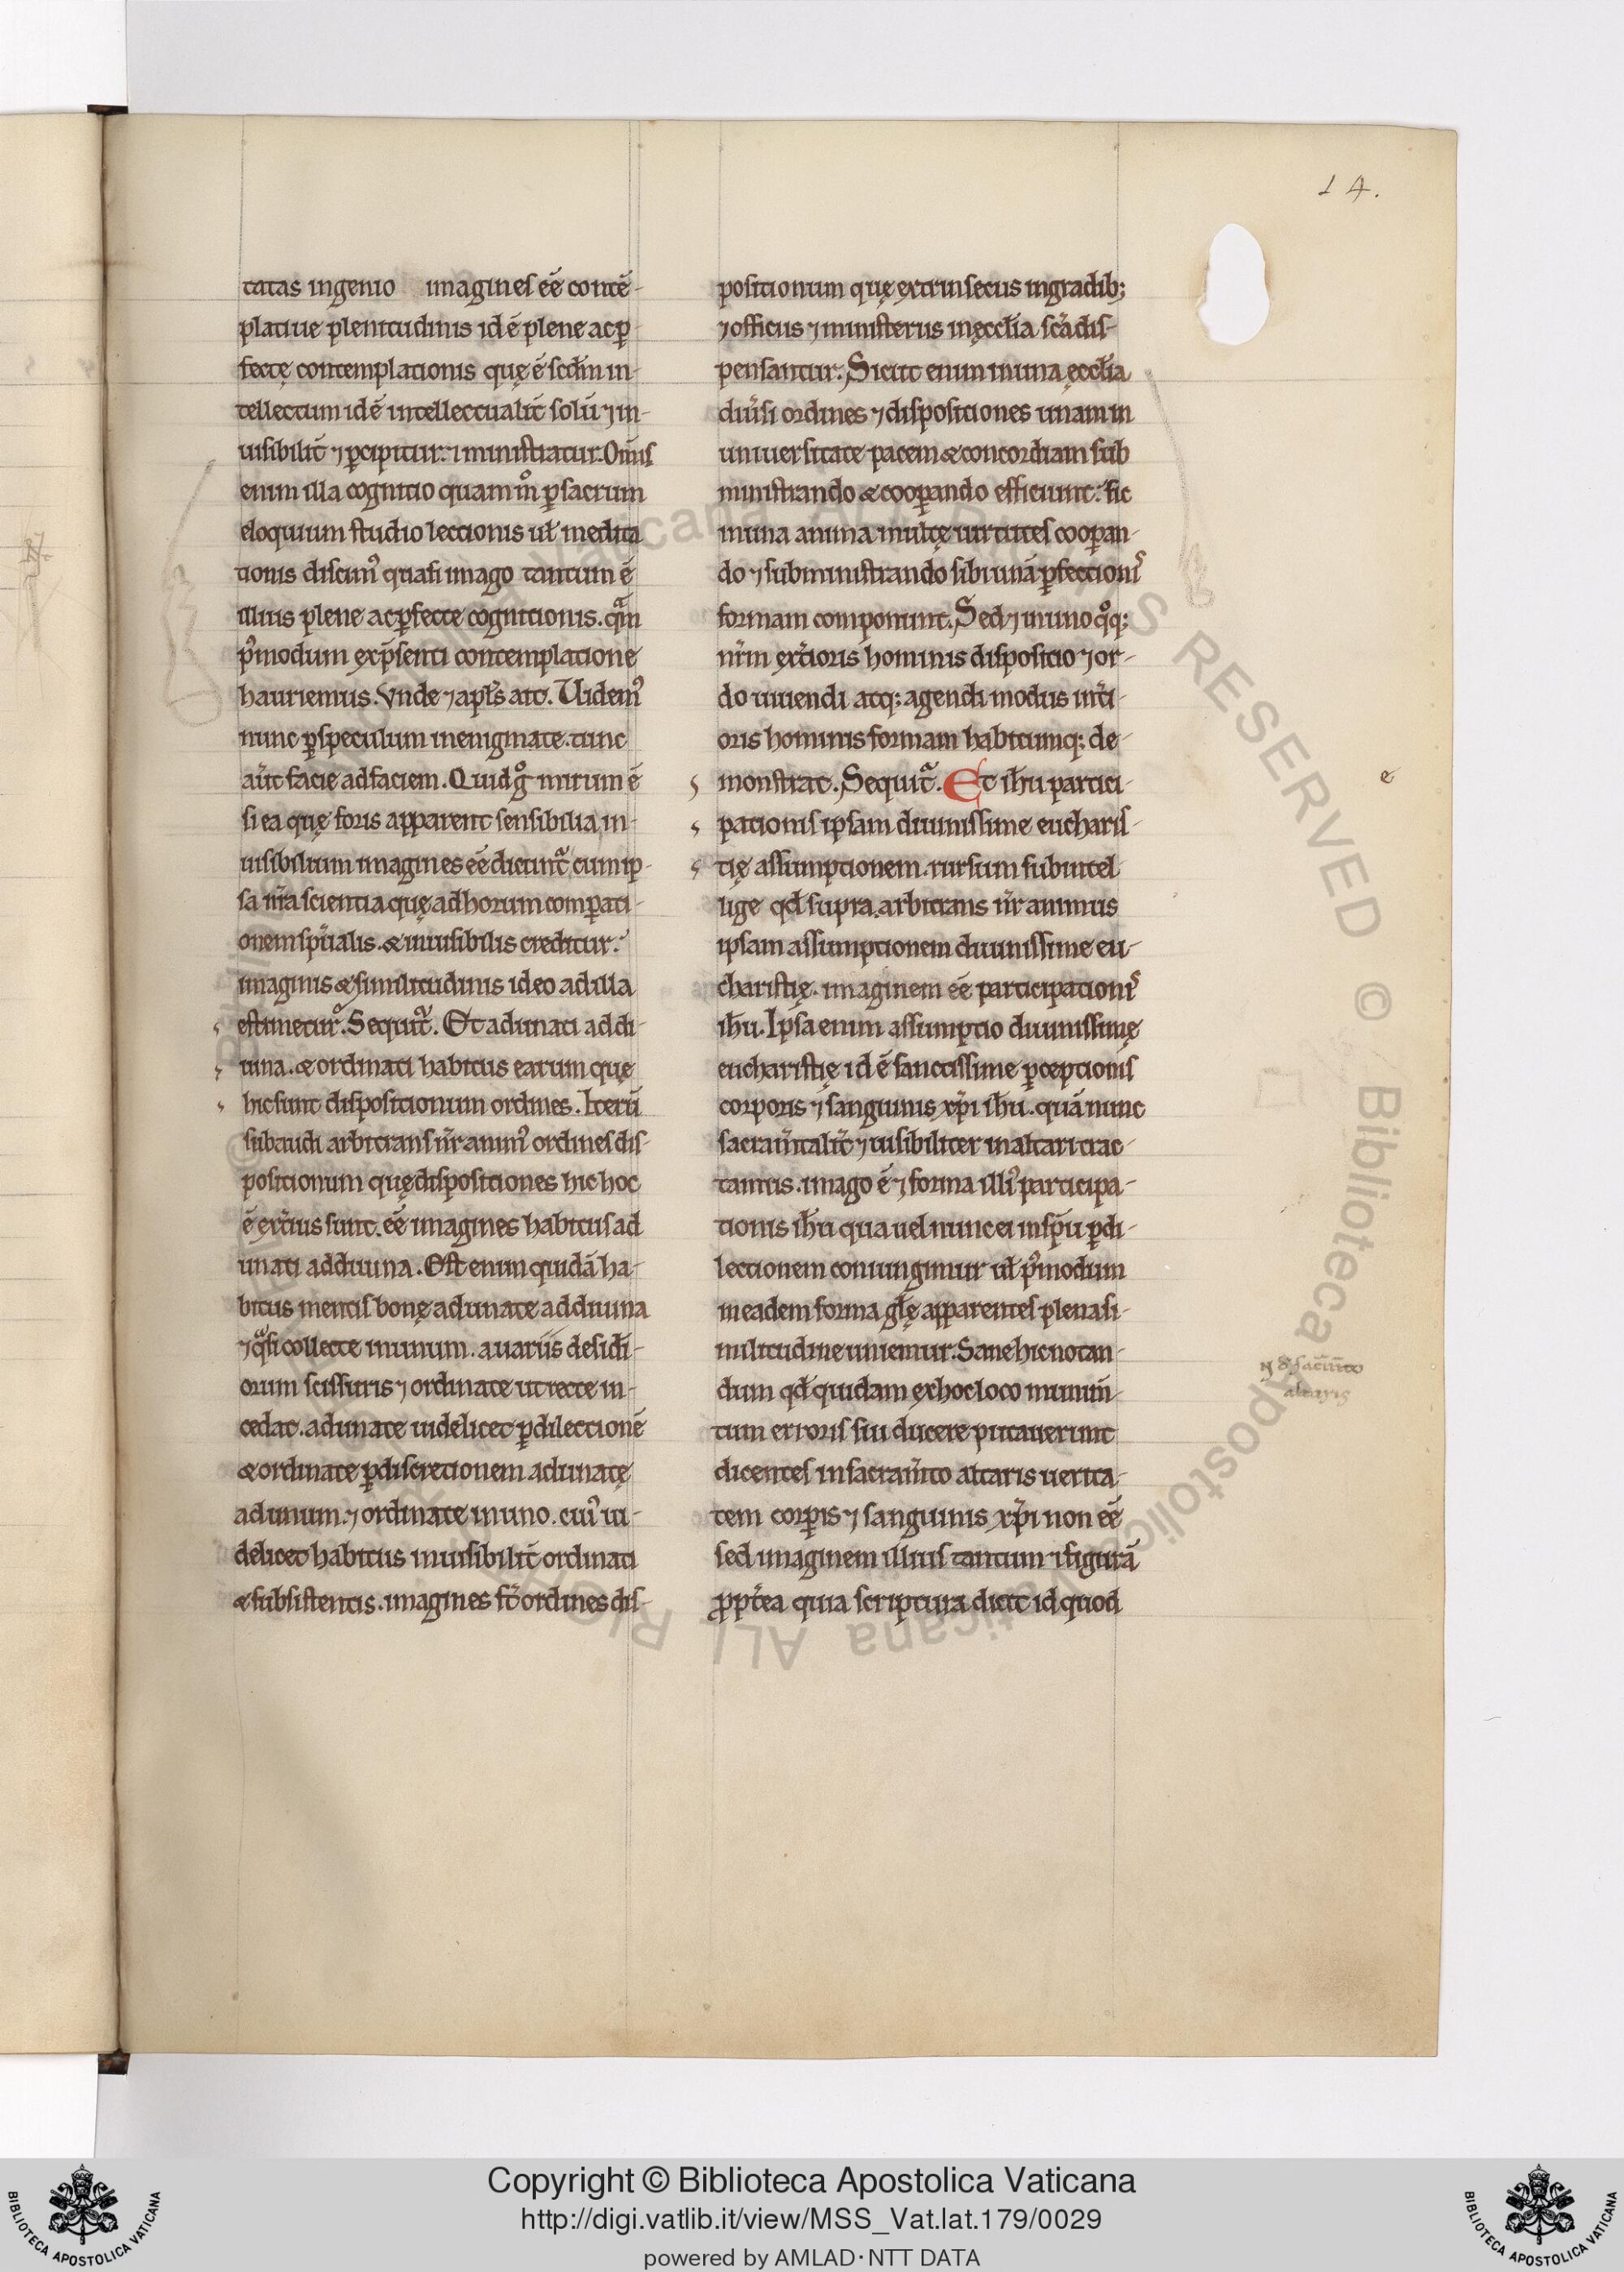 14.
tatas ingenio imagines eē contē-
platiue plenitudinis id ē plene ac ꝑ-
fectę contemplationis quę ē scdm̄ in-
tellectum id ē intellectualit̄ solū ⁊ in-
uisibilit̄ ⁊ ꝑcipitur. ⁊ ministratur. Om̄is
enim illa cognitio quam m̊ ꝑ sacrum
eloquium studio lectionis ul̄ medita
tionis discim᾽ quasi imago tantum ē
illius plene ac ꝑfecte cognitionis. qͣm
p᾽modum ex p̄senti contemplatione
hauriemus. Vnde ⁊ apl̄s ait. Uidem᾽
nunc ꝑ speculum in enigmate. tunc
aūt facie ad faciem. Quid g̊ mirum ē
si ea quę foris apparent sensibilia, in-
uisibilium imagines eē dicunt᷑ cum ip-
sa nr̄a scientia quę ad horum comparati-
onem spūalis. & inuisibilis creditur.
imaginis & similitudinis ideo ad illa
estimetur. Sequit᷑. Et adunati ad di-
uina. & ordinati habitus earum quę
hic sunt dispositionum ordines. Iterū
subaudi arbitrans nr̄ anim᾽ ordines dis-
positionum quę dispositiones hic hoc
ē ext̄ius sunt. eē imagines habitus ad
unati ad diuina. Est enim quidā ha-
bitus mentis bonę adunate ad diuina
⁊ qͣsi collecte in unum. a uariis desidi-
orum scissuris ⁊ ordinate ut recte in-
cedat. adunate uidelicet ꝑ dilectionē
& ordinate ꝑ discretionem adunatę
ad unum. ⁊ ordinate in uno. cui᾽ ui-
delicet habitus inuisibilit̄ ordinati
& subsistentis. imagines st̄ ordines dis-
positionum quę extrinsecus in gradib;
⁊ officiis ⁊ ministeriis in ęccl̄ia sc̄a dis-
pensantur. Sicut enim in una ęccl̄ia
diūsi ordines ⁊ dispositiones unam in
uniuersitate pacem & concordiam sub
ministrando & cooꝑando efficiunt. sic
in una anima multę uirtutes cooꝑan-
do ⁊ subministrando sibi unā ꝑfectionis
formam componunt. Sed ⁊ in uno q̊q;
nr̄m ext̄ioris hominis dispositio ⁊ or-
do uiuendi atq; agendi modus int̄i-
oris hominis formam habitumq; de-
monstrat. Sequit᷑. Et ih̄u partici-
pationis ipsam diuinissime eucharis-
tię assumptionem. rursum subintel-
lige qd̄ supra. arbitrans nr̄ animus
ipsam assumptionem diuinissime eu-
charistię. imaginem eē participationis
ih̄u. Ipsa enim assumptio diuinissimę
eucharistię id ē sanctissime ꝑceptionis
corporis ⁊ sanguinis xp̄i ih̄u. quā nunc
sacram̄talit̄ ⁊ uisibiliter in altari trac-
tamus. imago ē ⁊ forma illi᾽ participa-
tionis ih̄u qua uel nunc ei in sp̄u ꝑ di-
lectionem coniungimur ul̄ p᾽modum
in eadem forma gl̄ę apparentes plena si-
militudine uniemur. Sane hic notan-
dum qd̄ quidam ex hoc loco munim̄-
tum erroris sui ducere putauerunt
dicentes in sacram̄to altaris uerita-
tem corꝑis ⁊ sanguinis xp̄i non eē
sed imaginem illius tantum ⁊ figurā
ꝓpt̄ea quia scriptura dicit id quod
e
altaris
Copyright © Biblioteca Apostolica Vaticana
http://digi.vatlib.it/view/MSS_Vat.lat.179/0029
powered by AMLAD·NTT DATA
BIBLIOTECA APOSTOLICA VATICANA
BIBLIOTECA APOSTOLICA VATICANA